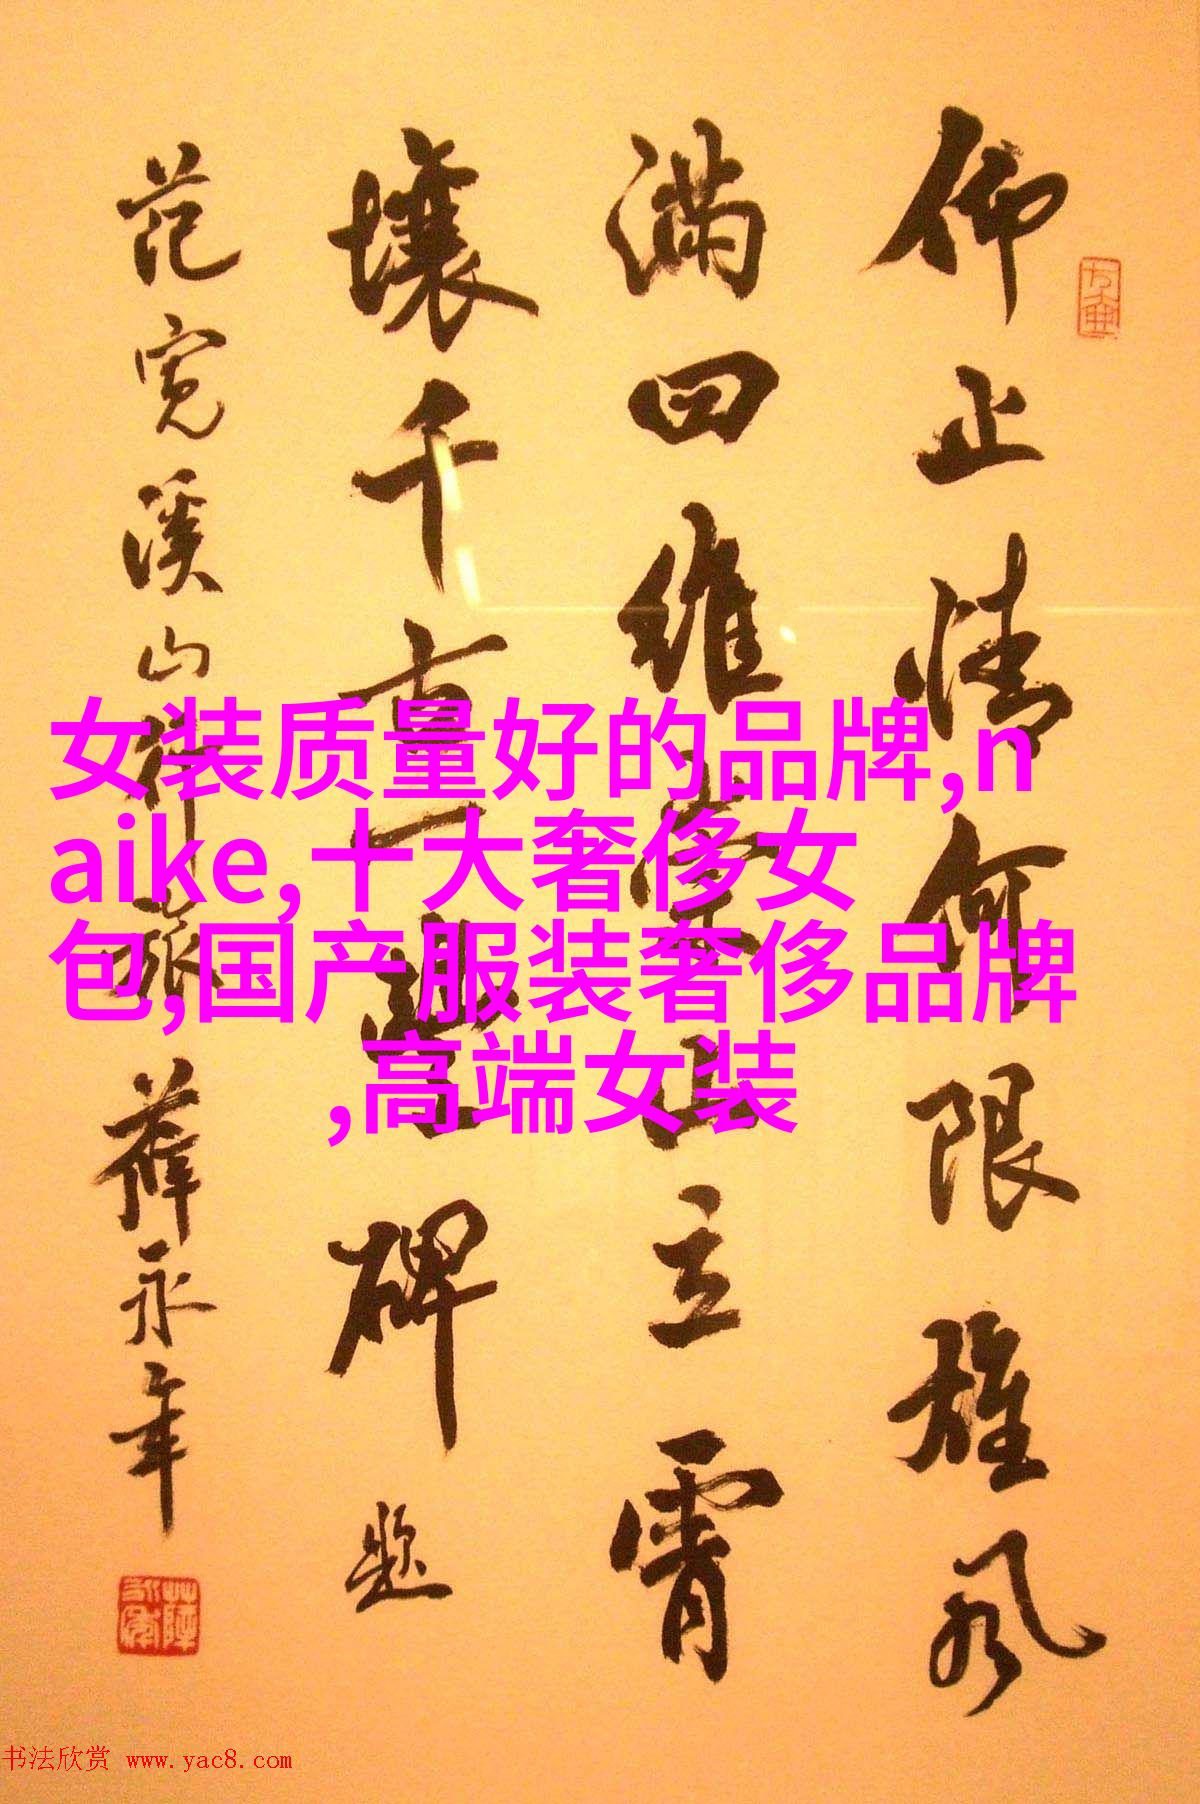 仰止情何限雄风
满四维崇山立霄
壤千古一丰碑题
范宽溪山行旅薛永年
女装质量好的品牌,n
aike,十大奢侈女
包,国产服装奢侈品牌
,高端女装
书法欣赏 www.yac8.com